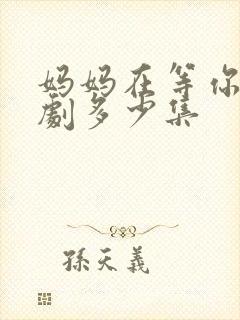 妈妈在等你
劇多少集
孫天義